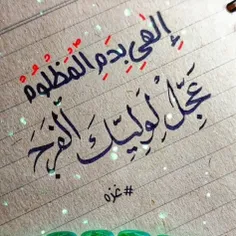 إِلٰهِي بِدَمِ الْمَظْلُومِ
عَجِّلْ لِوَلِيِّكَ الْفَرَجَ
#غزه